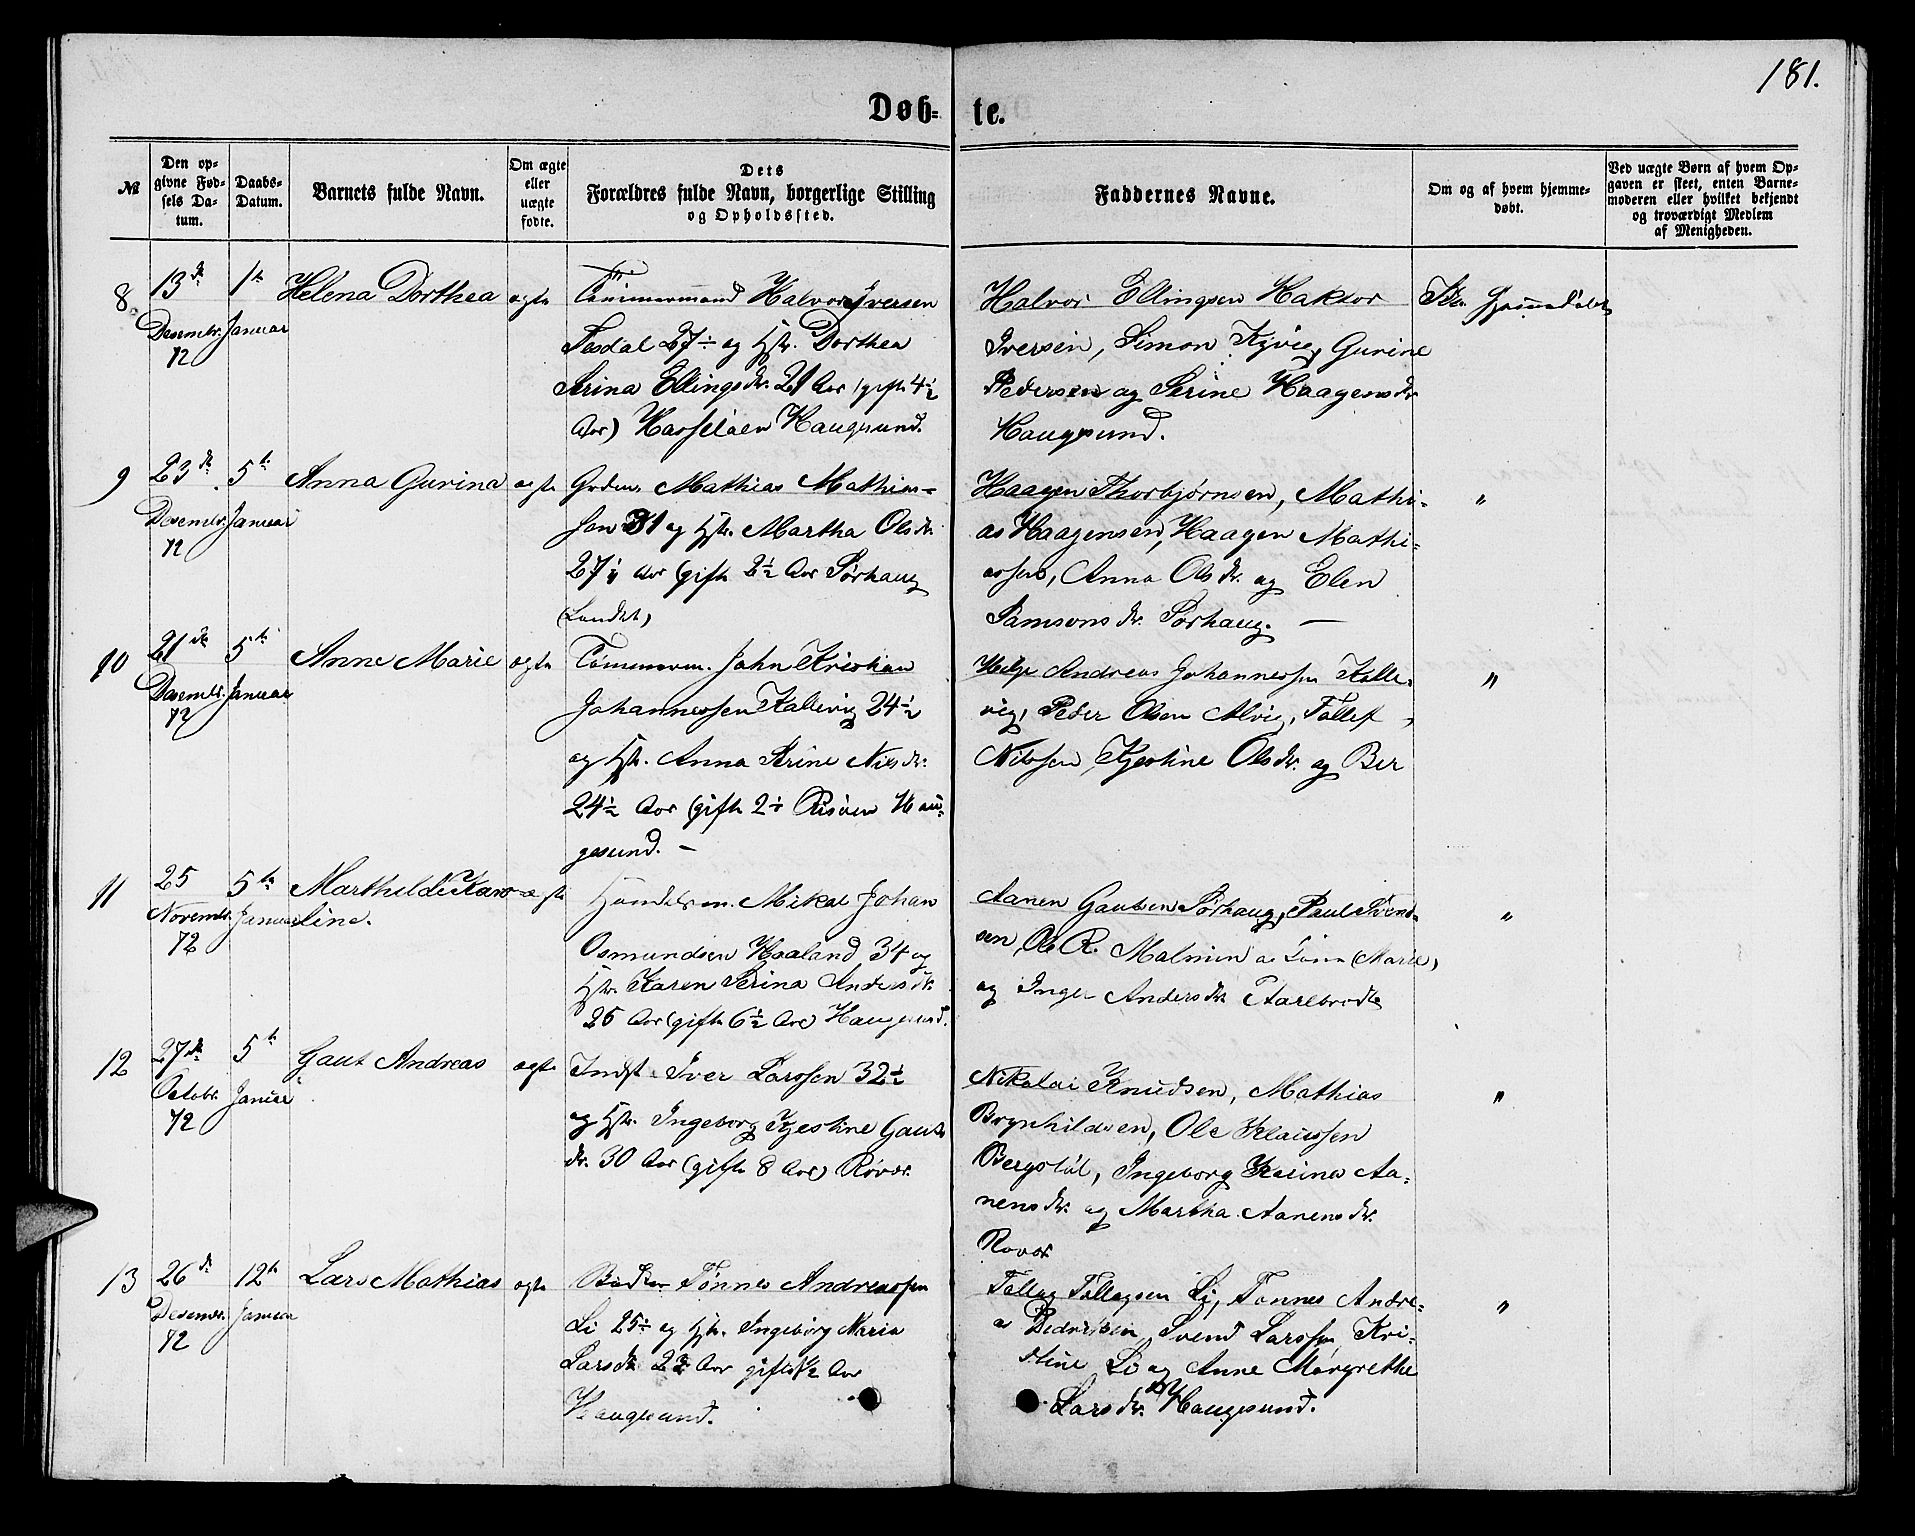 181.
Døb- te.
№
Den op-
givne Fød-
sels Da-
tum.
Daabs-
Datum.
Barnets fulde Navn.
Om ægte
eller
uægte
fødte.
Dets
Forældres fulde Navn, borgerlige Stilling
og Opholdssted.
Faddernes Navne.
Om og af hvem hjemme-
døbt.
Ved uægte Børn af hvem Op-
gaven er skeet, enten Barne-
moderen eller hvilket bekjendt
og troværdigt Medlem
af Menigheden.
8.
13de
Desembr.
72
1te
Januar
Helena Dorthea
ægte
Tømmermand Halvor Iversen
Sesdal 27½ og Hstr. Dorthea
Serina Ellingsdr. 21 Aar (gifte 4½
Aar) Hasseløen Haugesund.
Halvor Ellingsen Haktor
Iversen, Simon Kyvig, Gurine
Pedersen og Serine Haagensdr.
Haugesund.
Hjemmedøbt
9
23de
Desembr.
72
5te
Januar
Anna Gurina
ægte
Grdm. Mathias Mathias-
sen 31 og Hstr. Martha Olsdr.
27½ Aar (gifte 2½ Aar Sørhaug
(Landet)
Haagen Thorbjørnsen, Mathi-
as Haagensen, Haagen Mathi-
assen, Anna Olsdr. og Elen
Samsonsdr. Sørhaug. —
"
10
21de
Desembr.
72
5te
Januar
Anne Marie
ægte
Tømmerm. John Kristian
Johannessen Kallevig 24½
og Hstr. Anna Serine Nilsdr.
24½ Aar (gifte 2½ Risøen Hau-
gesund. —
Helge Andreas Johannessen Kalle-
vig, Peder Olsen Alvig, Tollef
Nilssen, Kjestine Olsdr. og Ber
"
11
25
Novembr.
72
5te
Januar
Marthilde Karo-
line.
ægte
Handelsm. Mikal Johan
Osmundsen Haaland 34 og
Hstr. Karen Serina Andersdr.
25 Aar (gifte 6½ Aar) Haugesund.
Aanen Gautsen Sørhaug, Paul Svend-
sen, Ole R. Malmin (Marie)
og Inger Andersdr.
"
12
27de
Octobr.
72
5te
Januar
Gaut Andreas
ægte
Indst. Iver Larssen 32½
og Hstr. Ingeborg Kjestine Gauts
dr. 30 Aar (gifte 8 Aar) Røvær.
Nikolai Knudsen, Mathias
Brynhildsen, Ole Klaussen
Bergstøl, Ingeborg Aa-
nensdr. og Martha Aanensdr.
Røvær
"
13
26de
Desembr.
72
12te
Januar
Lars Mathias
ægte
Tønnes Andreassen
Li 25½ og Hstr. Ingeborg Maria
Larsdr. 22 Aar gifte ½ Aar
Haugesund.
Tollag Tollagsen Li, Tønnes Andre-
as Pedersen, Svend Larssen Kri-
stine Li og Anne Margrethe
Larsdr. Haugesund.
"